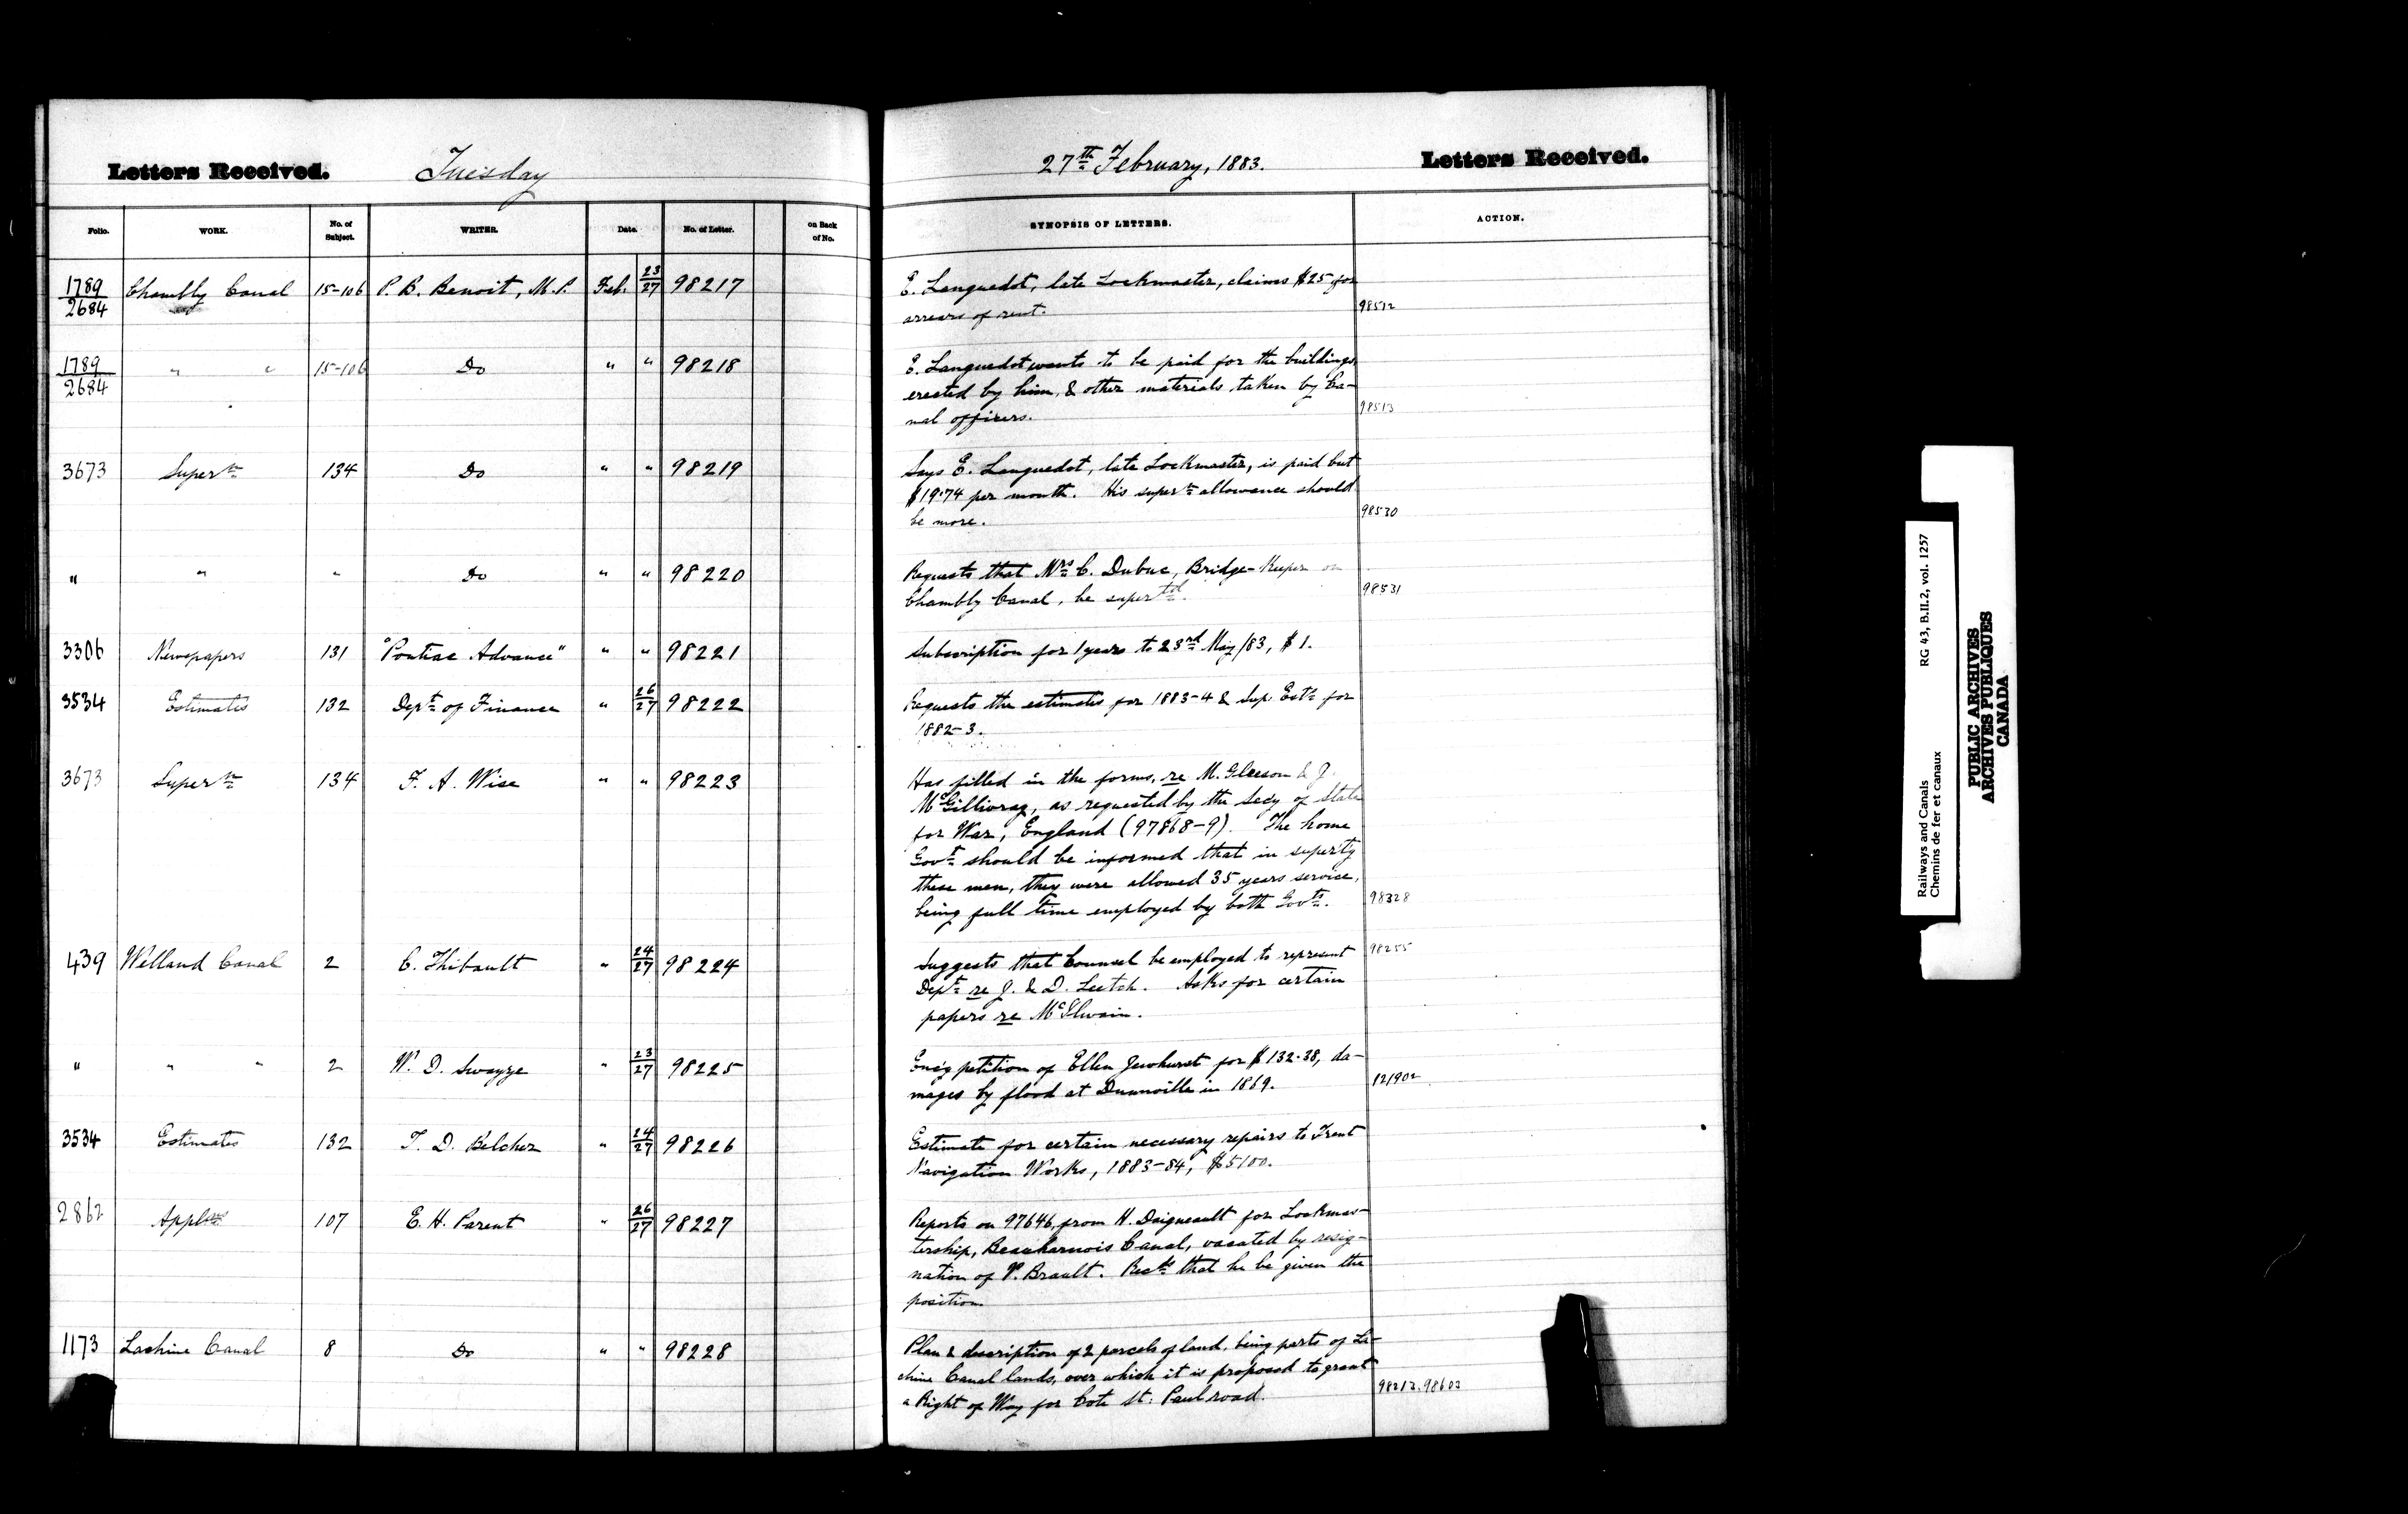 Letters Received. Tuesday 27th February, 1883. Letters Received.
Folio. WORK. No. of Subject. WRITER. Date. No. of Letter. on Back of No. SYNOPSIS OF LETTERS. ACTION.
1789/2684 Chambly Canal 15-106 P. B. Benoit, M.P. Feb. 23/27 98217 E. Languedot, late Lockmaster, claims $25 for
arrears of rent. 98512
1789/2684 " " 15-106 Do " " 98218 E. Languedot wants to be paid for the buildings
erected by him, & other materials taken by Ca-
nal officers. 98513
3673 Supern 134 Do " " 98219 Says E. Languedot, late Lockmaster, is paid but
$19.74 per month. His supern allowance should
be more. 98530
" " " Do " " 98220 Requests that Mrs C. Dubuc, Bridge-Keeper on
Chambly Canal, be supertd. 98531
3306 Newspapers 131 "Pontiac Advance" " " 98221 Subscription for 1 years to 23rd May/83, $1.
3534 Estimates 132 Dept of Finance " 26/27 98222 Requests the estimates for 1883-4 & Sup. Ests for
1882-3.
3673 Supern 134 F. A. Wise " " 98223 Has filled in the forms, re M. Gleeson & J.
McGillivray, as requested by the Secy of State
for War, England (97868-9). The home
Govt should be informed that in super'g
these men, they were allowed 35 years service,
being full time employed by both Govts. 98328
439 Welland Canal 2 C. Thibault " 24/27 98224 Suggests that Counsel be employed to represent 98255
Dept re J. & D. Leitch. Asks for certain
papers re McIlwain.
" " " 2 W. D. Swayze " 23/27 98225 Enc'g petition of Ellen Jewhurst for $132.38, da-
mages by flood at Dunnville in 1869. 121902
3534 Estimates 132 T. D. Belcher " 24/27 98226 Estimate for certain necessary repairs to Trent
Navigation Works, 1883-84, $5100.
2862 Applns 107 E. H. Parent " 26/27 98227 Reports on 97646, from H. Daigneault for Lockmas-
tership, Beauharnois Canal, vacated by resig-
nation of V. Brault. Recds that he be given the
position
1173 Lachine Canal 8 Do " " 98228 Plan & description of 2 parcels of land, being parts of La-
chine Canal lands, over which it is proposed to grant
a Right of Way for Cote St. Paul road. 98212.98603
Railways and Canals RG 43, B.II.2, vol. 1257
Chemins de fer et canaux
PUBLIC ARCHIVES
ARCHIVES PUBLIQUES
CANADA